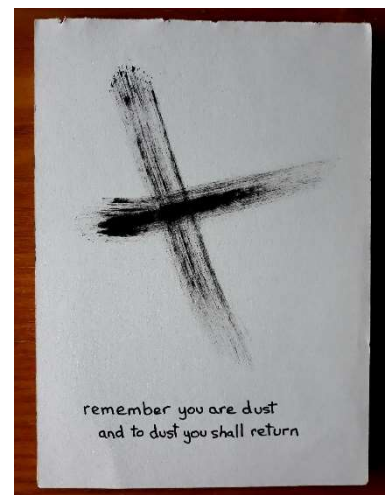 remember you are dust
and to dust you shall return